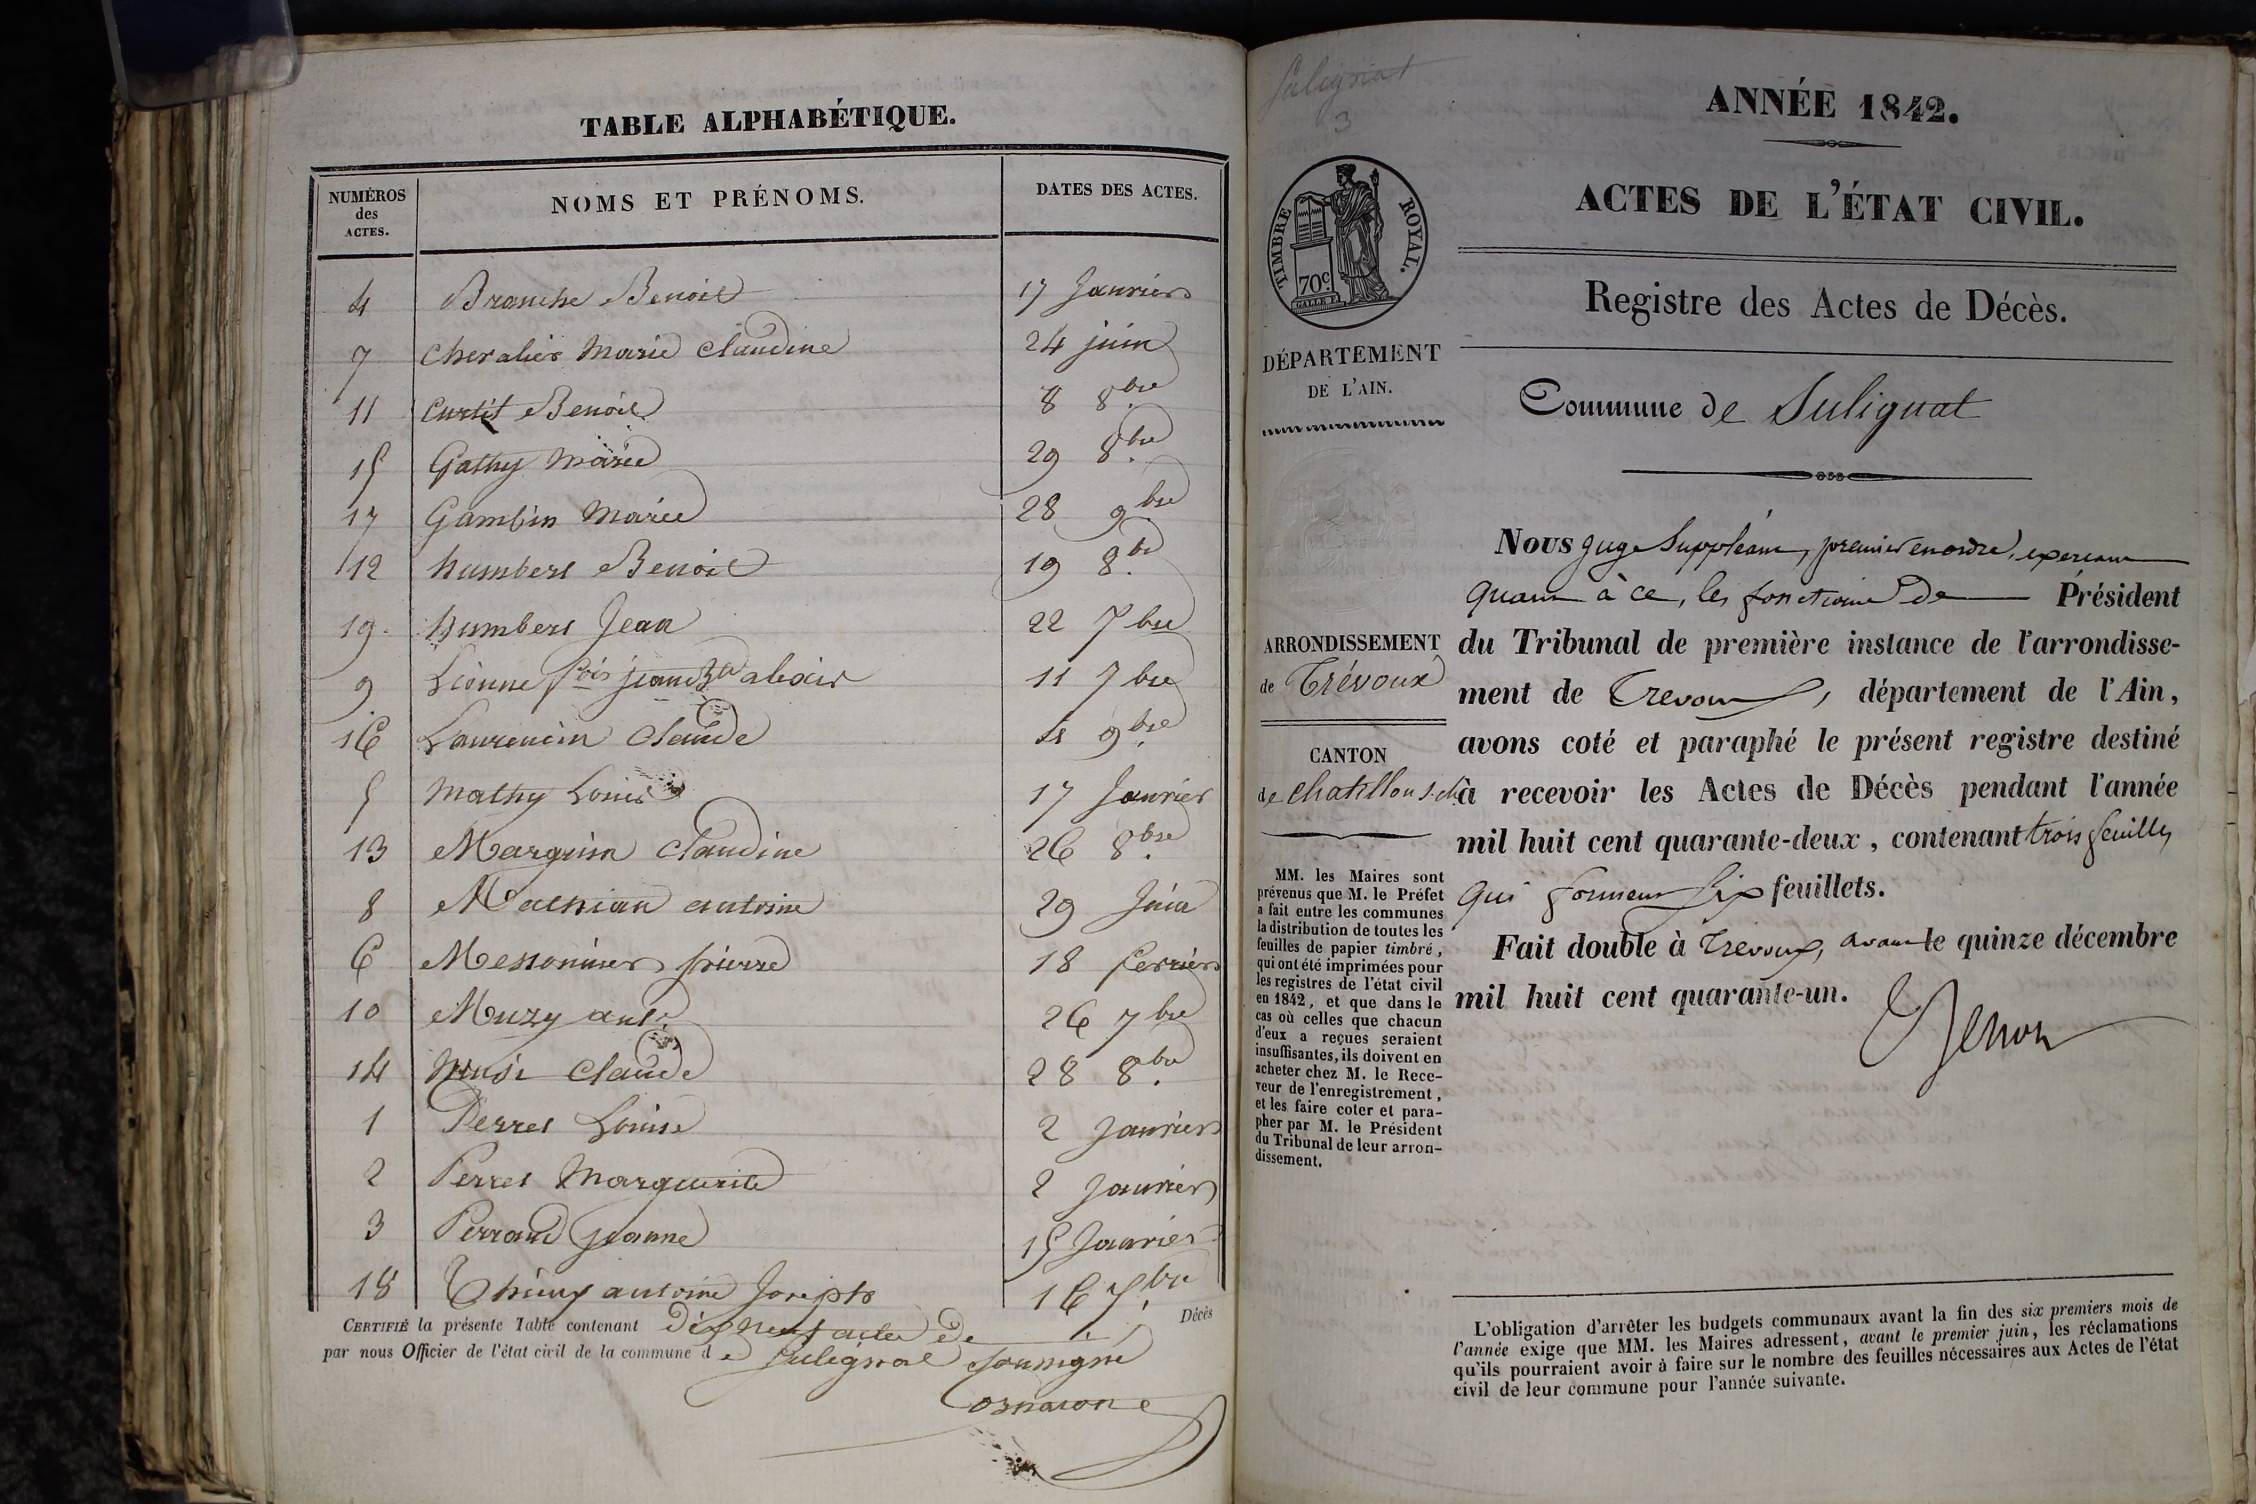 TABLE ALPHABÉTIQUE.
NUMÉROS des ACTES. NOMS ET PRÉNOMS. DATES DES ACTES.
4 Branche Benoit 17 Janvier
7 Chevalier Marie Claudine 24 juin
11 Curtit Benoit 8 8bre
15 Gathy Marie 29 8bre
17 Gambin Marie 28 9bre
12 humbert Benoit 19 8bre
19. humbert Jean 22 7bre
9 Lionne fois jean Bte alexis 11 7bre
16 Laurencin Claude 4 9bre
5 Mathy Louis 17 Janvier
13 Marguin Claudine 26 8bre
8 Mathian antoine 29 Juin
6 Messonnier pierre 18 fevrier
10 Muzy 26 7bre
14 Claude 28 8bre
1 Perret Louise 2 Janvier
2 Perret Marguerite 2 Janvier
3 Perraud jeanne 15 Janvier
18 antoine Joseph 16 7bre
CERTIFIÉ la présente Table contenant dix neuf actes de Décès
par nous Officier de l'état civil de la commune de Sulignat soussigné
Suligniat
3
ANNÉE 1842.
ACTES DE L'ÉTAT CIVIL.
Registre des Actes de Décès.
TIMBRE ROYAL.
70c
DÉPARTEMENT
DE L'AIN.
Commune de Sulignat
ARRONDISSEMENT
de Trévoux
CANTON
de chatillon s. ch.
MM. les Maires sont
prévenus que M. le Préfet
a fait entre les communes
la distribution de toutes les
feuilles de papier timbré,
qui ont été imprimées pour
les registres de l'état civil
en 1842, et que dans le
cas où celles que chacun
d'eux a reçues seraient
insuffisantes, ils doivent en
acheter chez M. le Rece-
veur de l'enregistrement,
et les faire coter et para-
pher par M. le Président
du Tribunal de leur arron-
dissement.
Nous juge Suppléant, premier en ordre, exerçant
quant à ce, les fonctions de Président
du Tribunal de première instance de l'arrondisse-
ment de Trevoux, département de l'Ain,
avons coté et paraphé le présent registre destiné
à recevoir les Actes de Décès pendant l'année
mil huit cent quarante-deux, contenant trois feuilles
qui forment Six feuillets.
Fait double à Trevoux, avant le quinze décembre
mil huit cent quarante-un.
L'obligation d'arrêter les budgets communaux avant la fin des six premiers mois de
l'année exige que MM. les Maires adressent, avant le premier juin, les réclamations
qu'ils pourraient avoir à faire sur le nombre des feuilles nécessaires aux Actes de l'état
civil de leur commune pour l'année suivante.